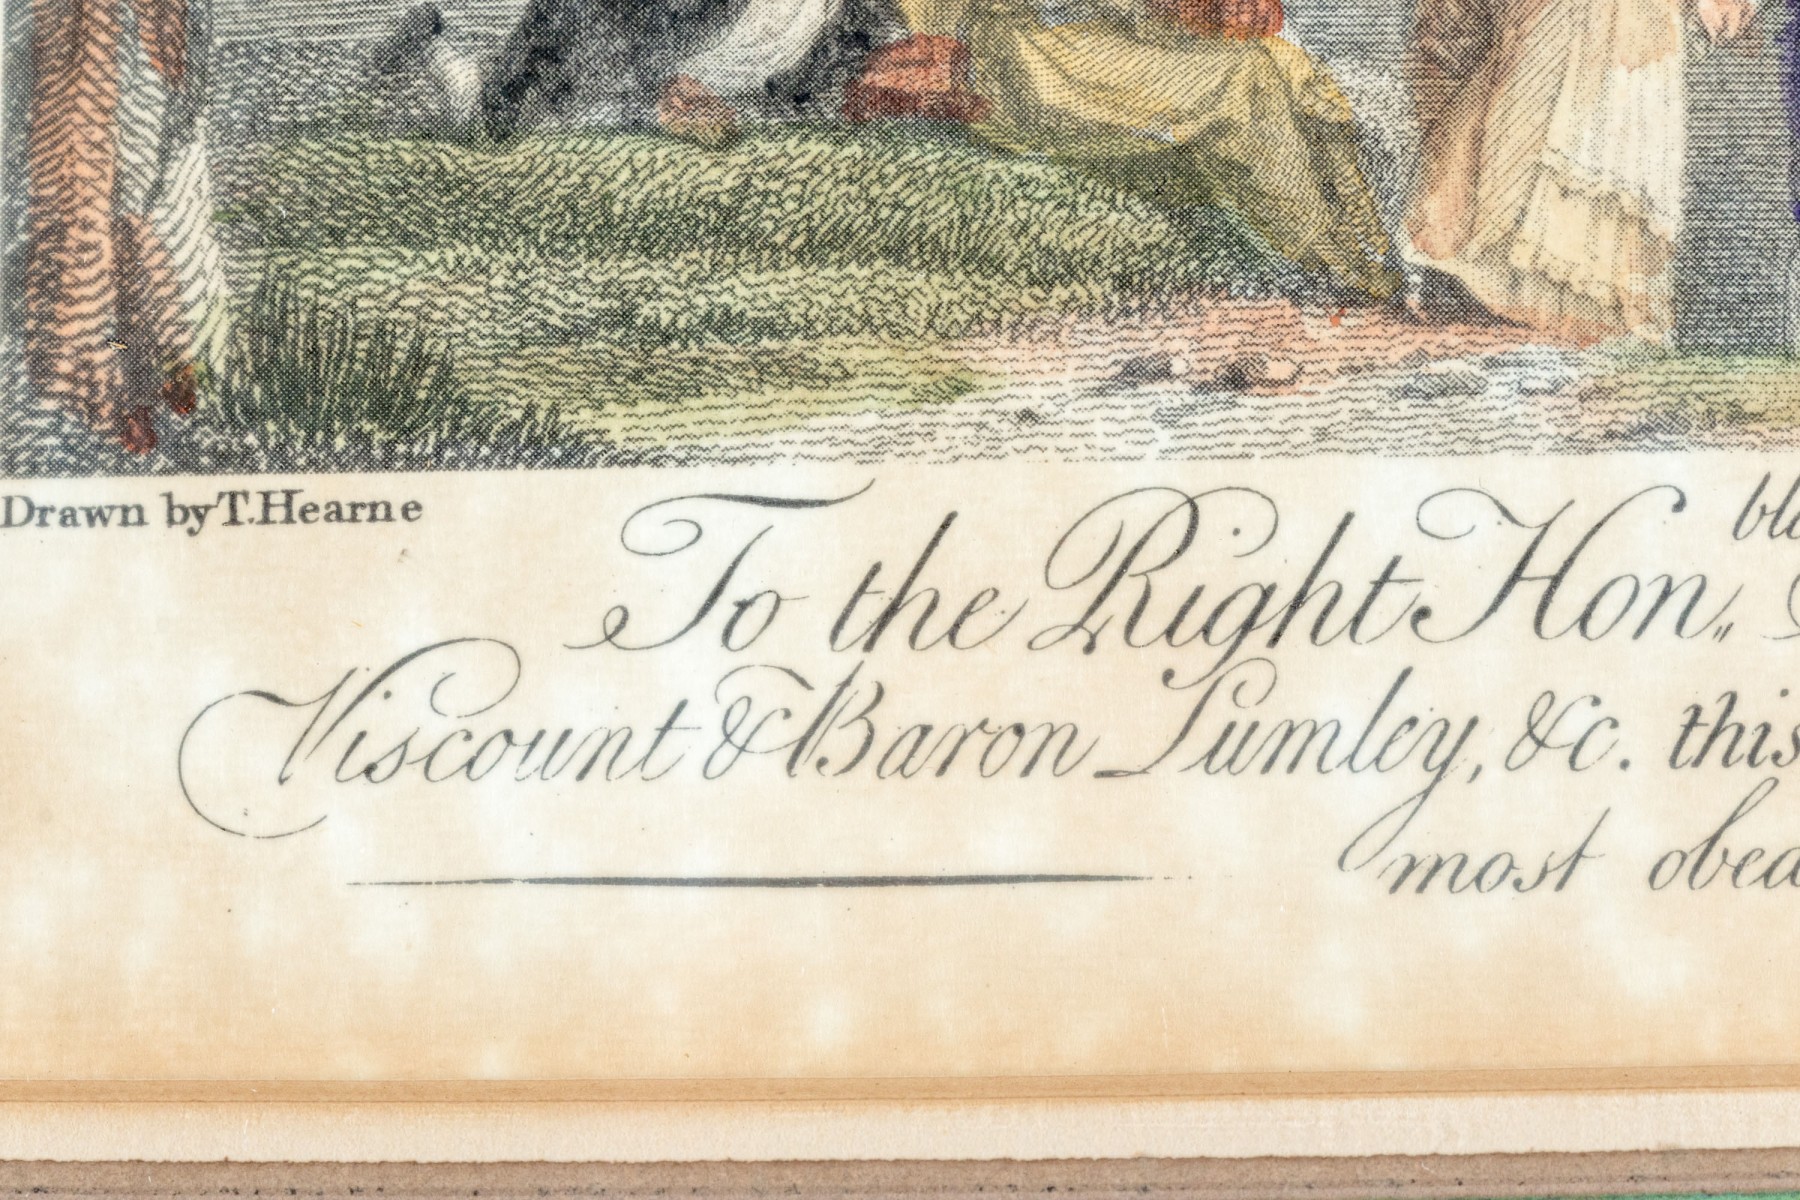 Drawn by T. Hearne
To the Right Hon,,
Viscount & Baron Lumley, &c. this
most